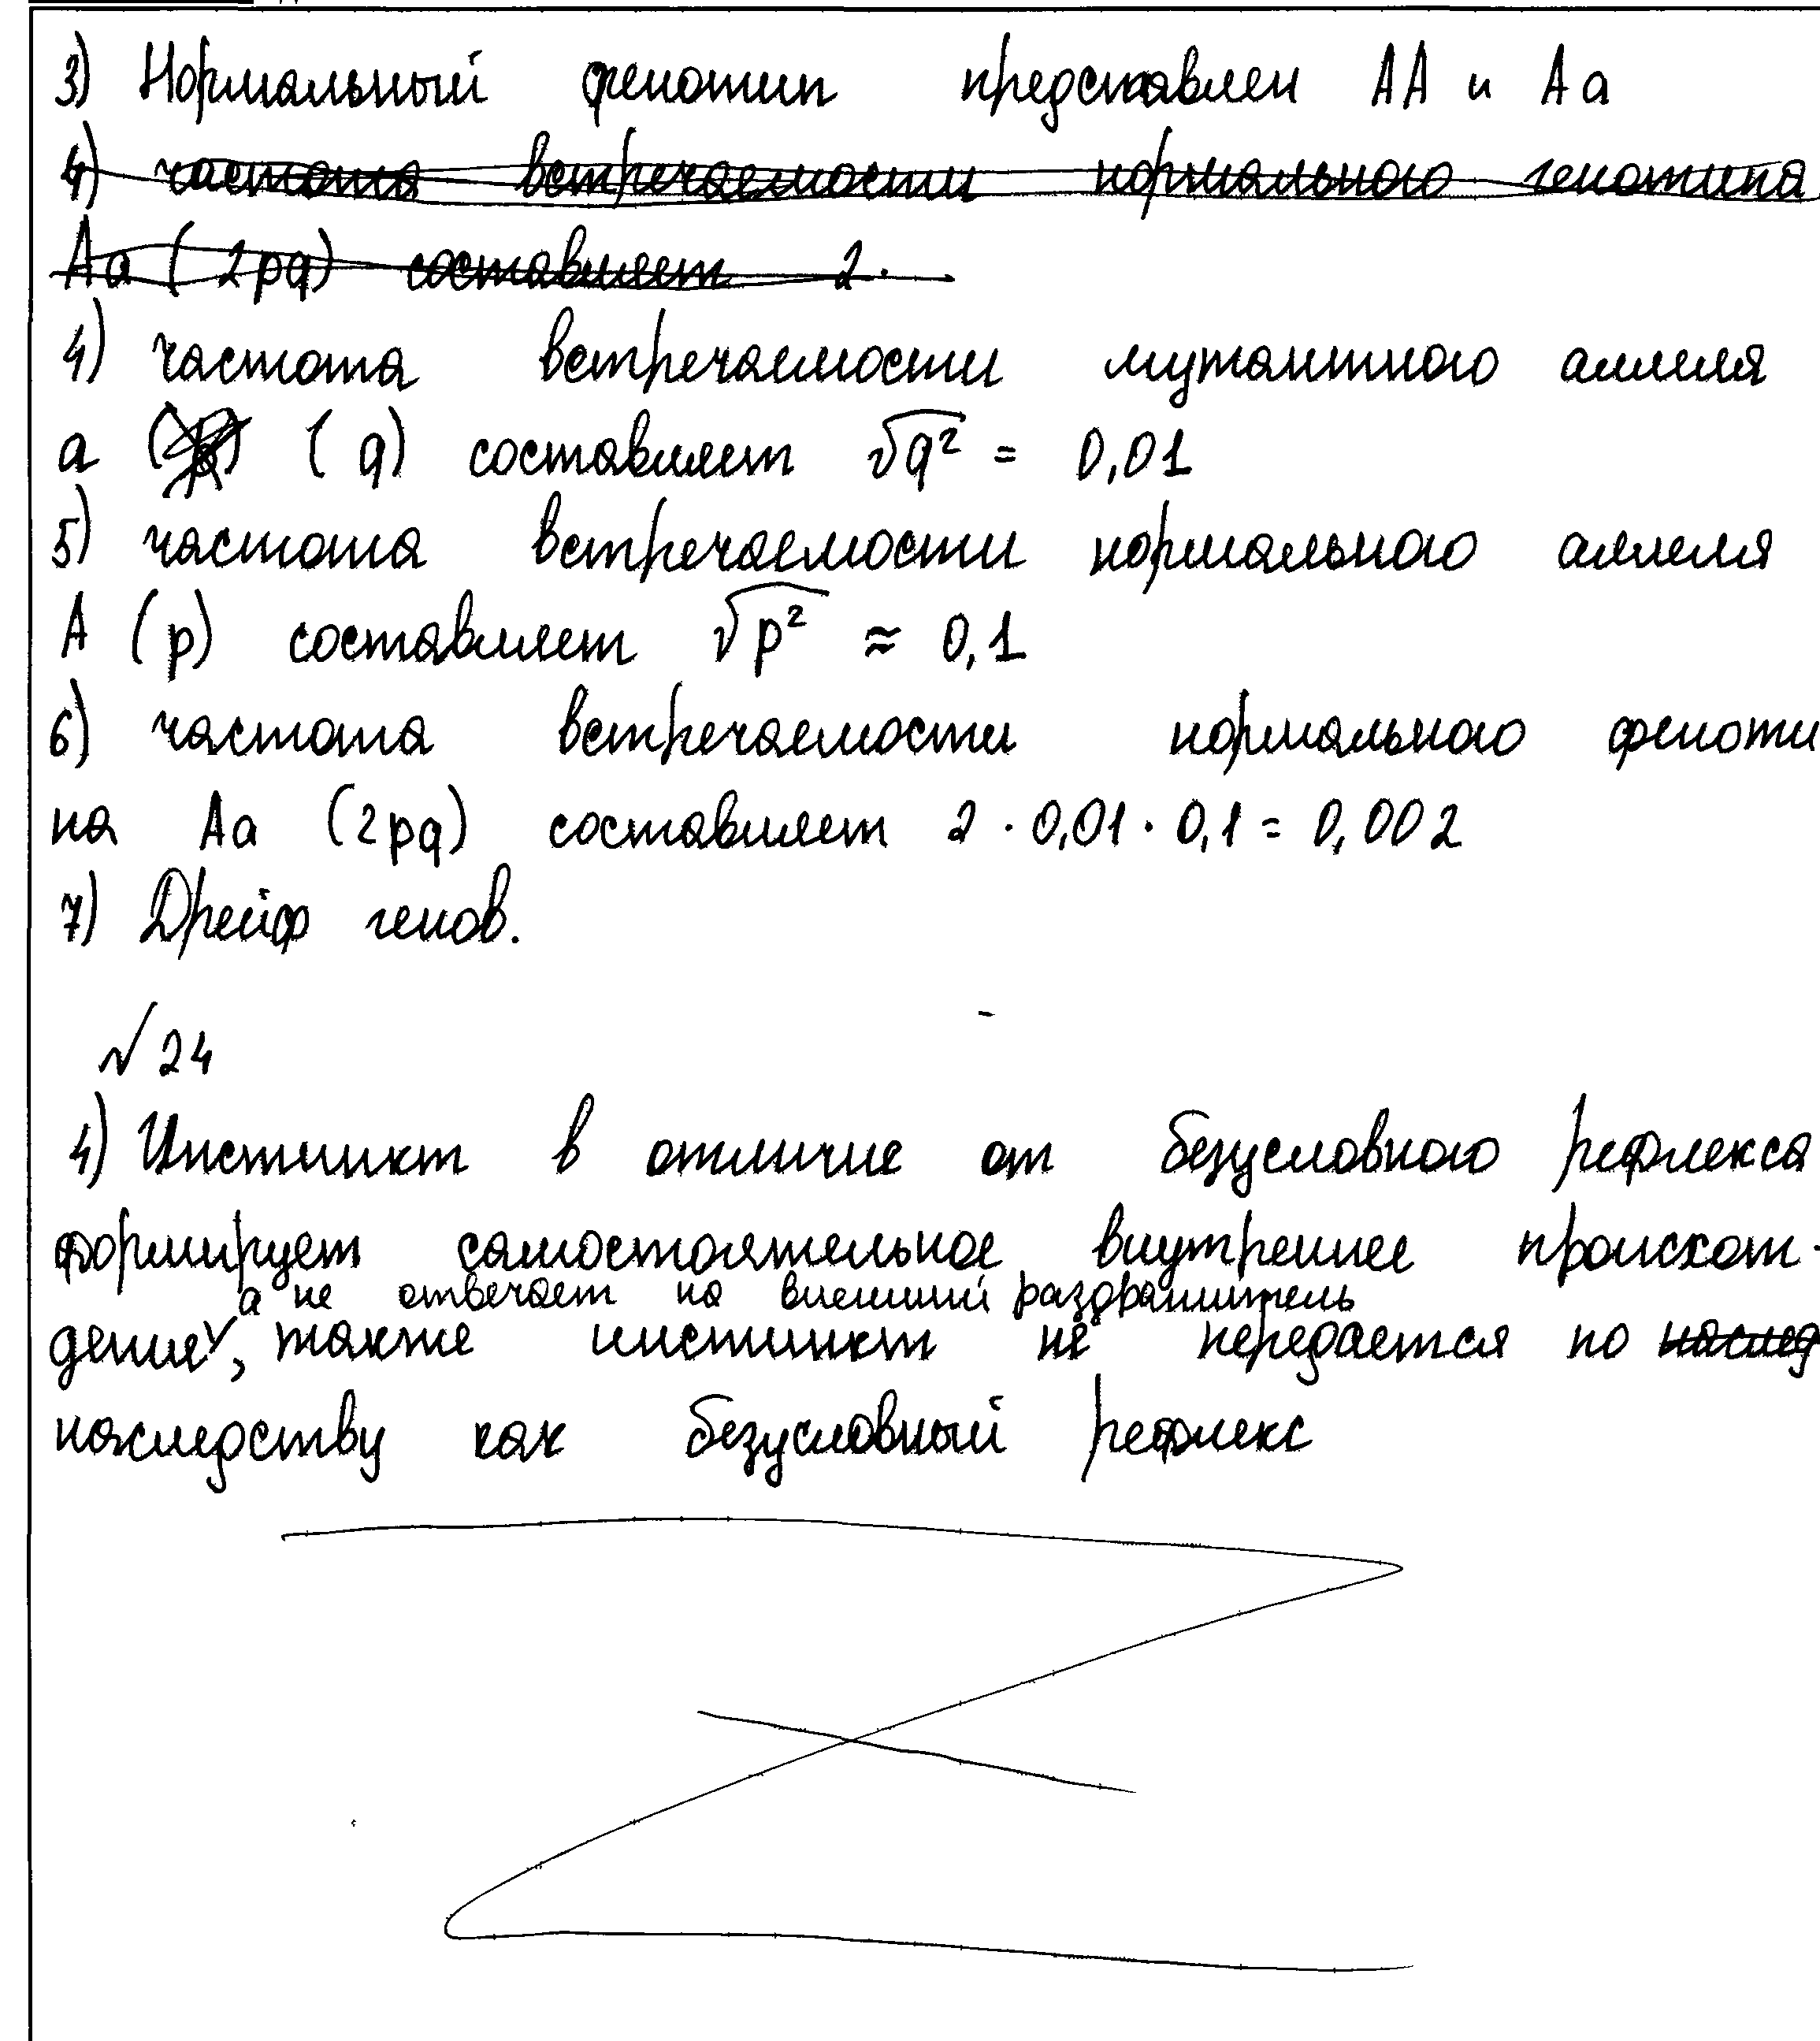 3) Нормальный фенотип представлен АА и Аа
4) частота встречаемости нормального генотипа
Аа ( 2pq) составляет 2.
4) частота встречаемости мутантного аллеля
а (q) составляет √q² = 0,01
5) частота встречаемости нормального аллеля
А (p) составляет √p² ≈ 0,1
6) частота встречаемости нормального феноти
па Аа (2pq) составляет 2 · 0,01 · 0,1 = 0,002
7) Дрейф генов.
√ 24
4) Инстинкт в отличие от безусловного рефлекса
формирует самостоятельное внутреннее происхот-
а не отвечает на внешний раздражитель
дение, также инстинкт не передается по наслед
наследству как безусловный рефлекс